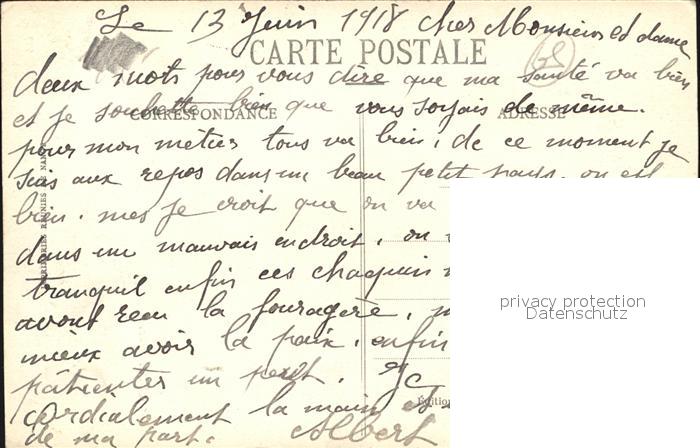 Le 13 Juin 1918 cher Monsieur et dame
CARTE POSTALE
deux mots pour vous dire que ma santé va bien
et je souhette bien que vous soyais de même.
CORRESPONDANCE
ADRESSE
pour mon métier tous va bien, de ce moment je
suis aux repos dans un beau petit pays, on est
bien. mes je croit que on va
dans un mauvais endroit, on
tranquil enfin ces chaquin
avont recu la fouragère,
mieux avoir la paix, enfin
patienter un peut. Je
Edition
cordialement la main et
de ma part. Albert
IMPRIMERIES REUNIES DE NANCY
privacy protection
Datenschutz